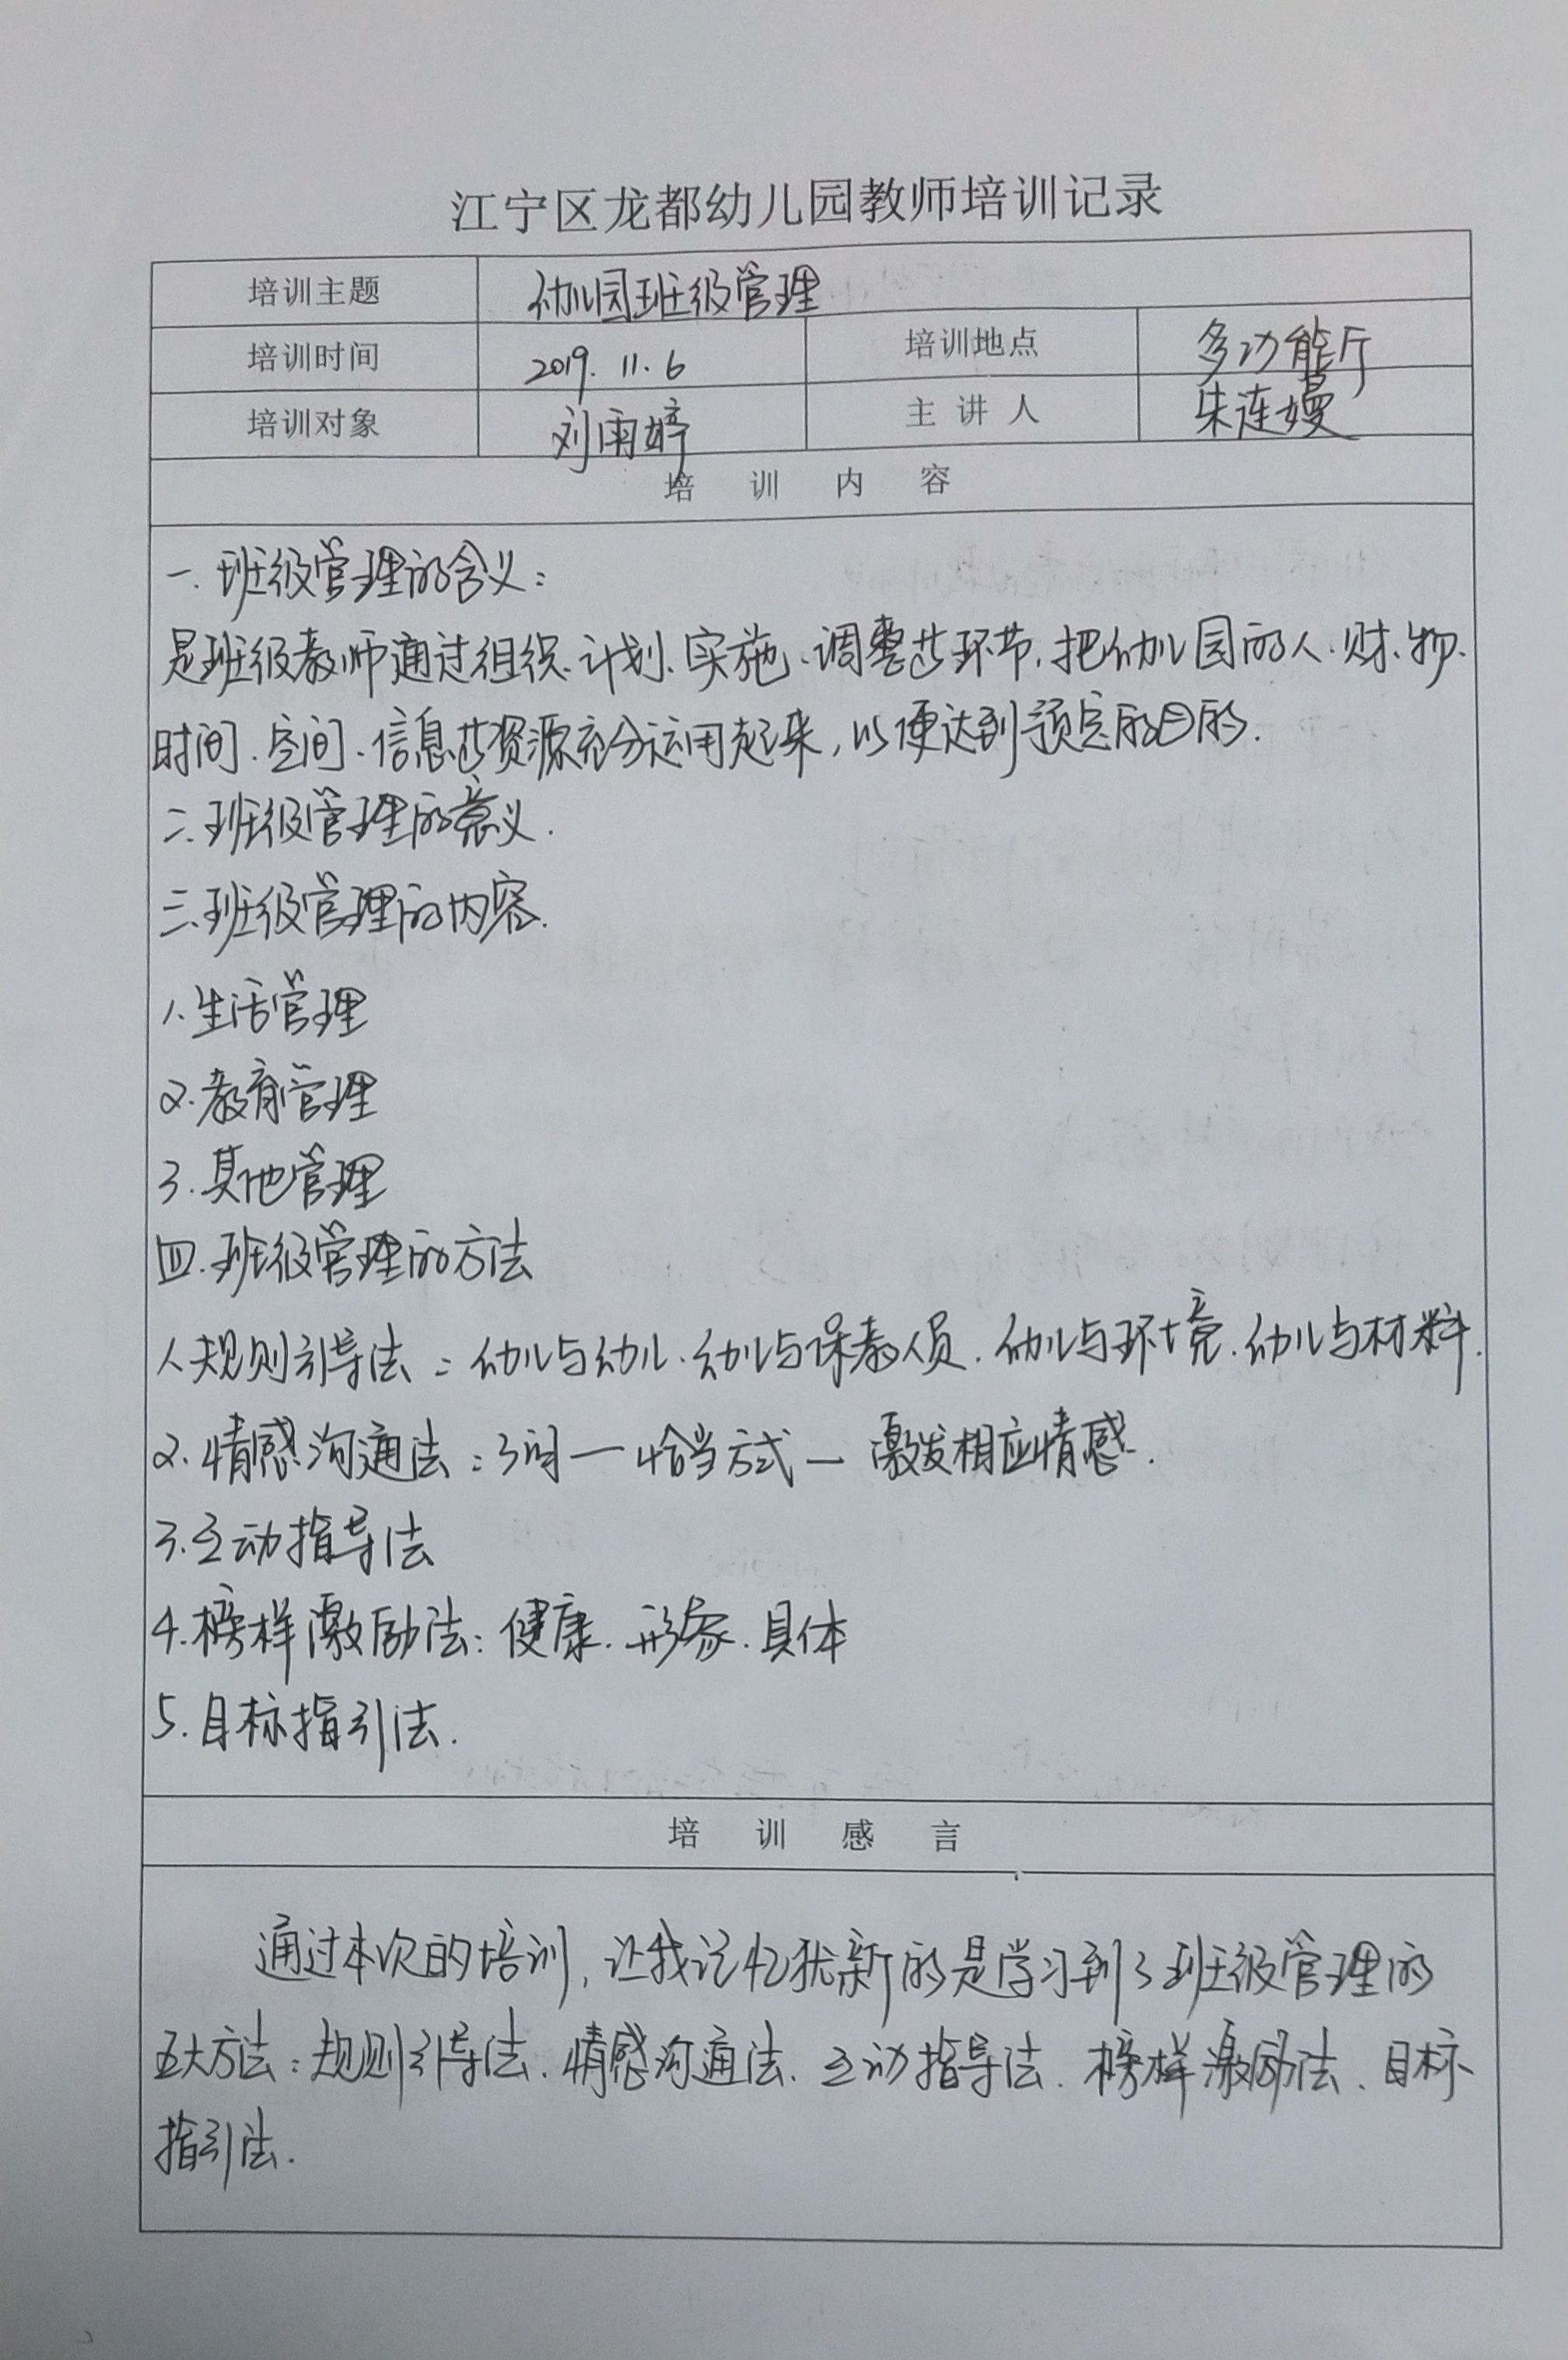 江宁区龙都幼儿园教师培训记录
培训主题 幼儿园班级管理
培训时间 2019.11.6 培训地点 多功能厅
培训对象 刘雨婷 主讲人 朱连嫚
培训内容
一.班级管理的含义:
是班级教师通过组织、计划、实施、调整等环节,把幼儿园的人、财、物、
时间、空间、信息等资源充分运用起来,以便达到预定的目的.
二.班级管理的意义.
三.班级管理的内容.
1.生活管理
2.教育管理
3.其他管理
四.班级管理的方法
1.规则引导法:幼儿与幼儿、幼儿与保教人员、幼儿与环境、幼儿与材料.
2.情感沟通法:了解—恰当方式—激发相应情感.
3.互动指导法
4.榜样激励法:健康、形象、具体
5.目标指引法.
培训感言
通过本次的培训,让我记忆犹新的是学习到了班级管理的
五大方法:规则引导法、情感沟通法、互动指导法、榜样激励法、目标
指引法.